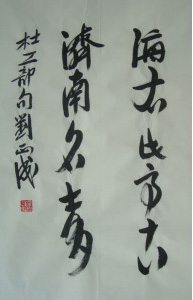 海右此亭古
濟南名士多
杜工部句劉正成